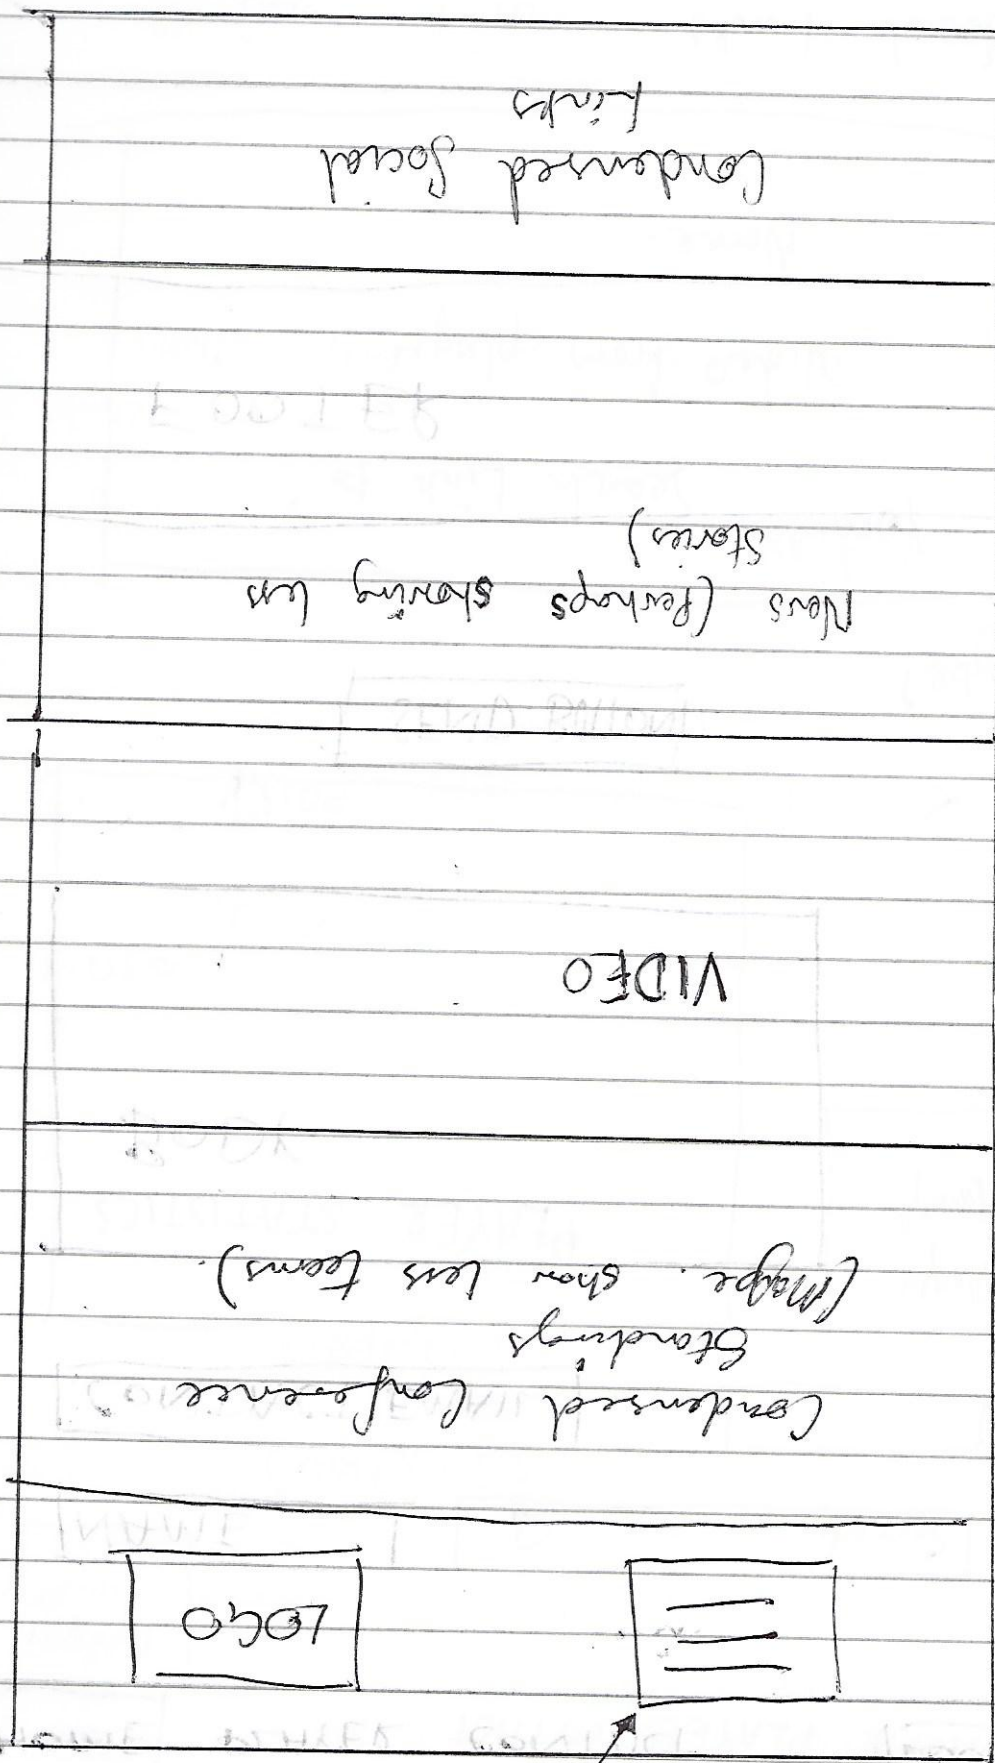 LOGO
Condensed Conference
Standings
(Maybe. show less teams).
VIDEO
News (Perhaps showing less
Stories)
Condensed Social
Links